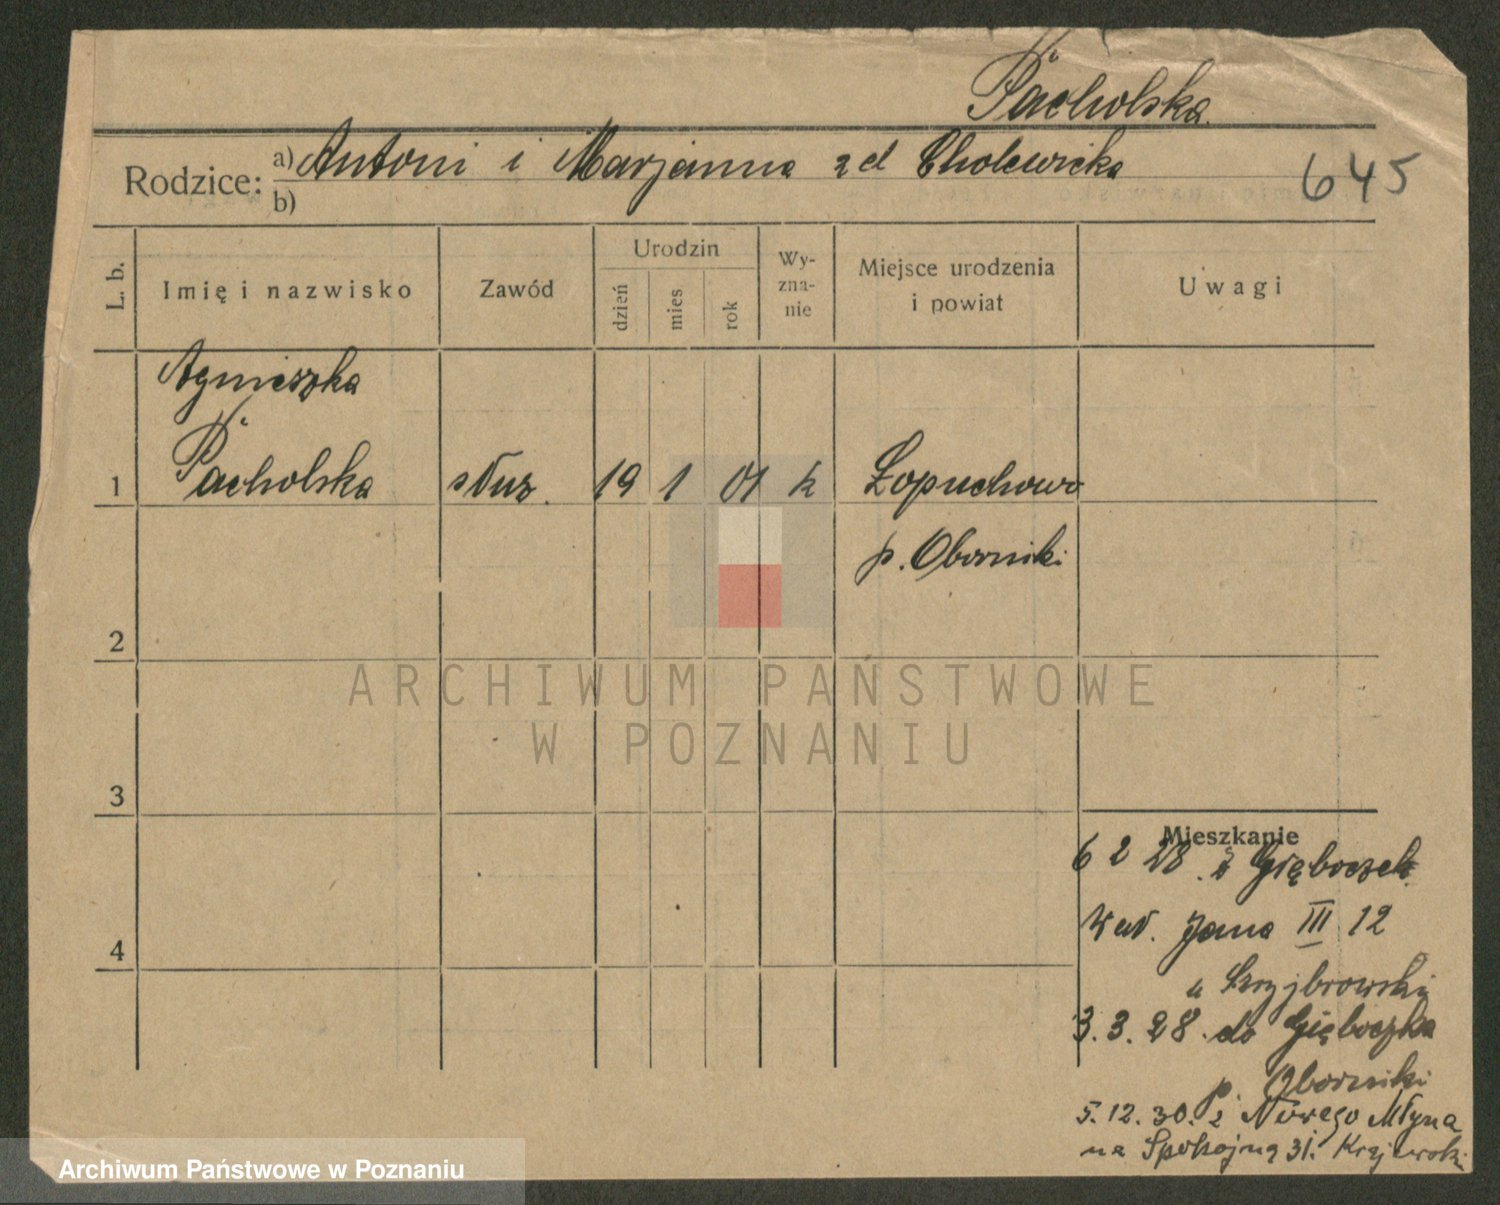 Pacholska
Rodzice: a) Antoni i Marjanna zd Cholewicka
b)
645
L. b.
Imię i nazwisko
Zawód
Urodzin
dzień
mies
rok
Wy-
zna-
nie
Miejsce urodzenia
i powiat
Uwagi
Agnieszka
1 Pacholska służ. 19 1 01 k Łopuchowo
p. Oborniki
2
ARCHIWUM PAŃSTWOWE
W POZNANIU
3
Mieszkanie
6 2 28. z Głęboczek
Wał. Jana III 12
4
u
3.3.28. do Głęboczka
p. Oborniki
5.12.30. z Nowego Młyna
na Spokojną 31. Krajewski
Archiwum Państwowe w Poznaniu